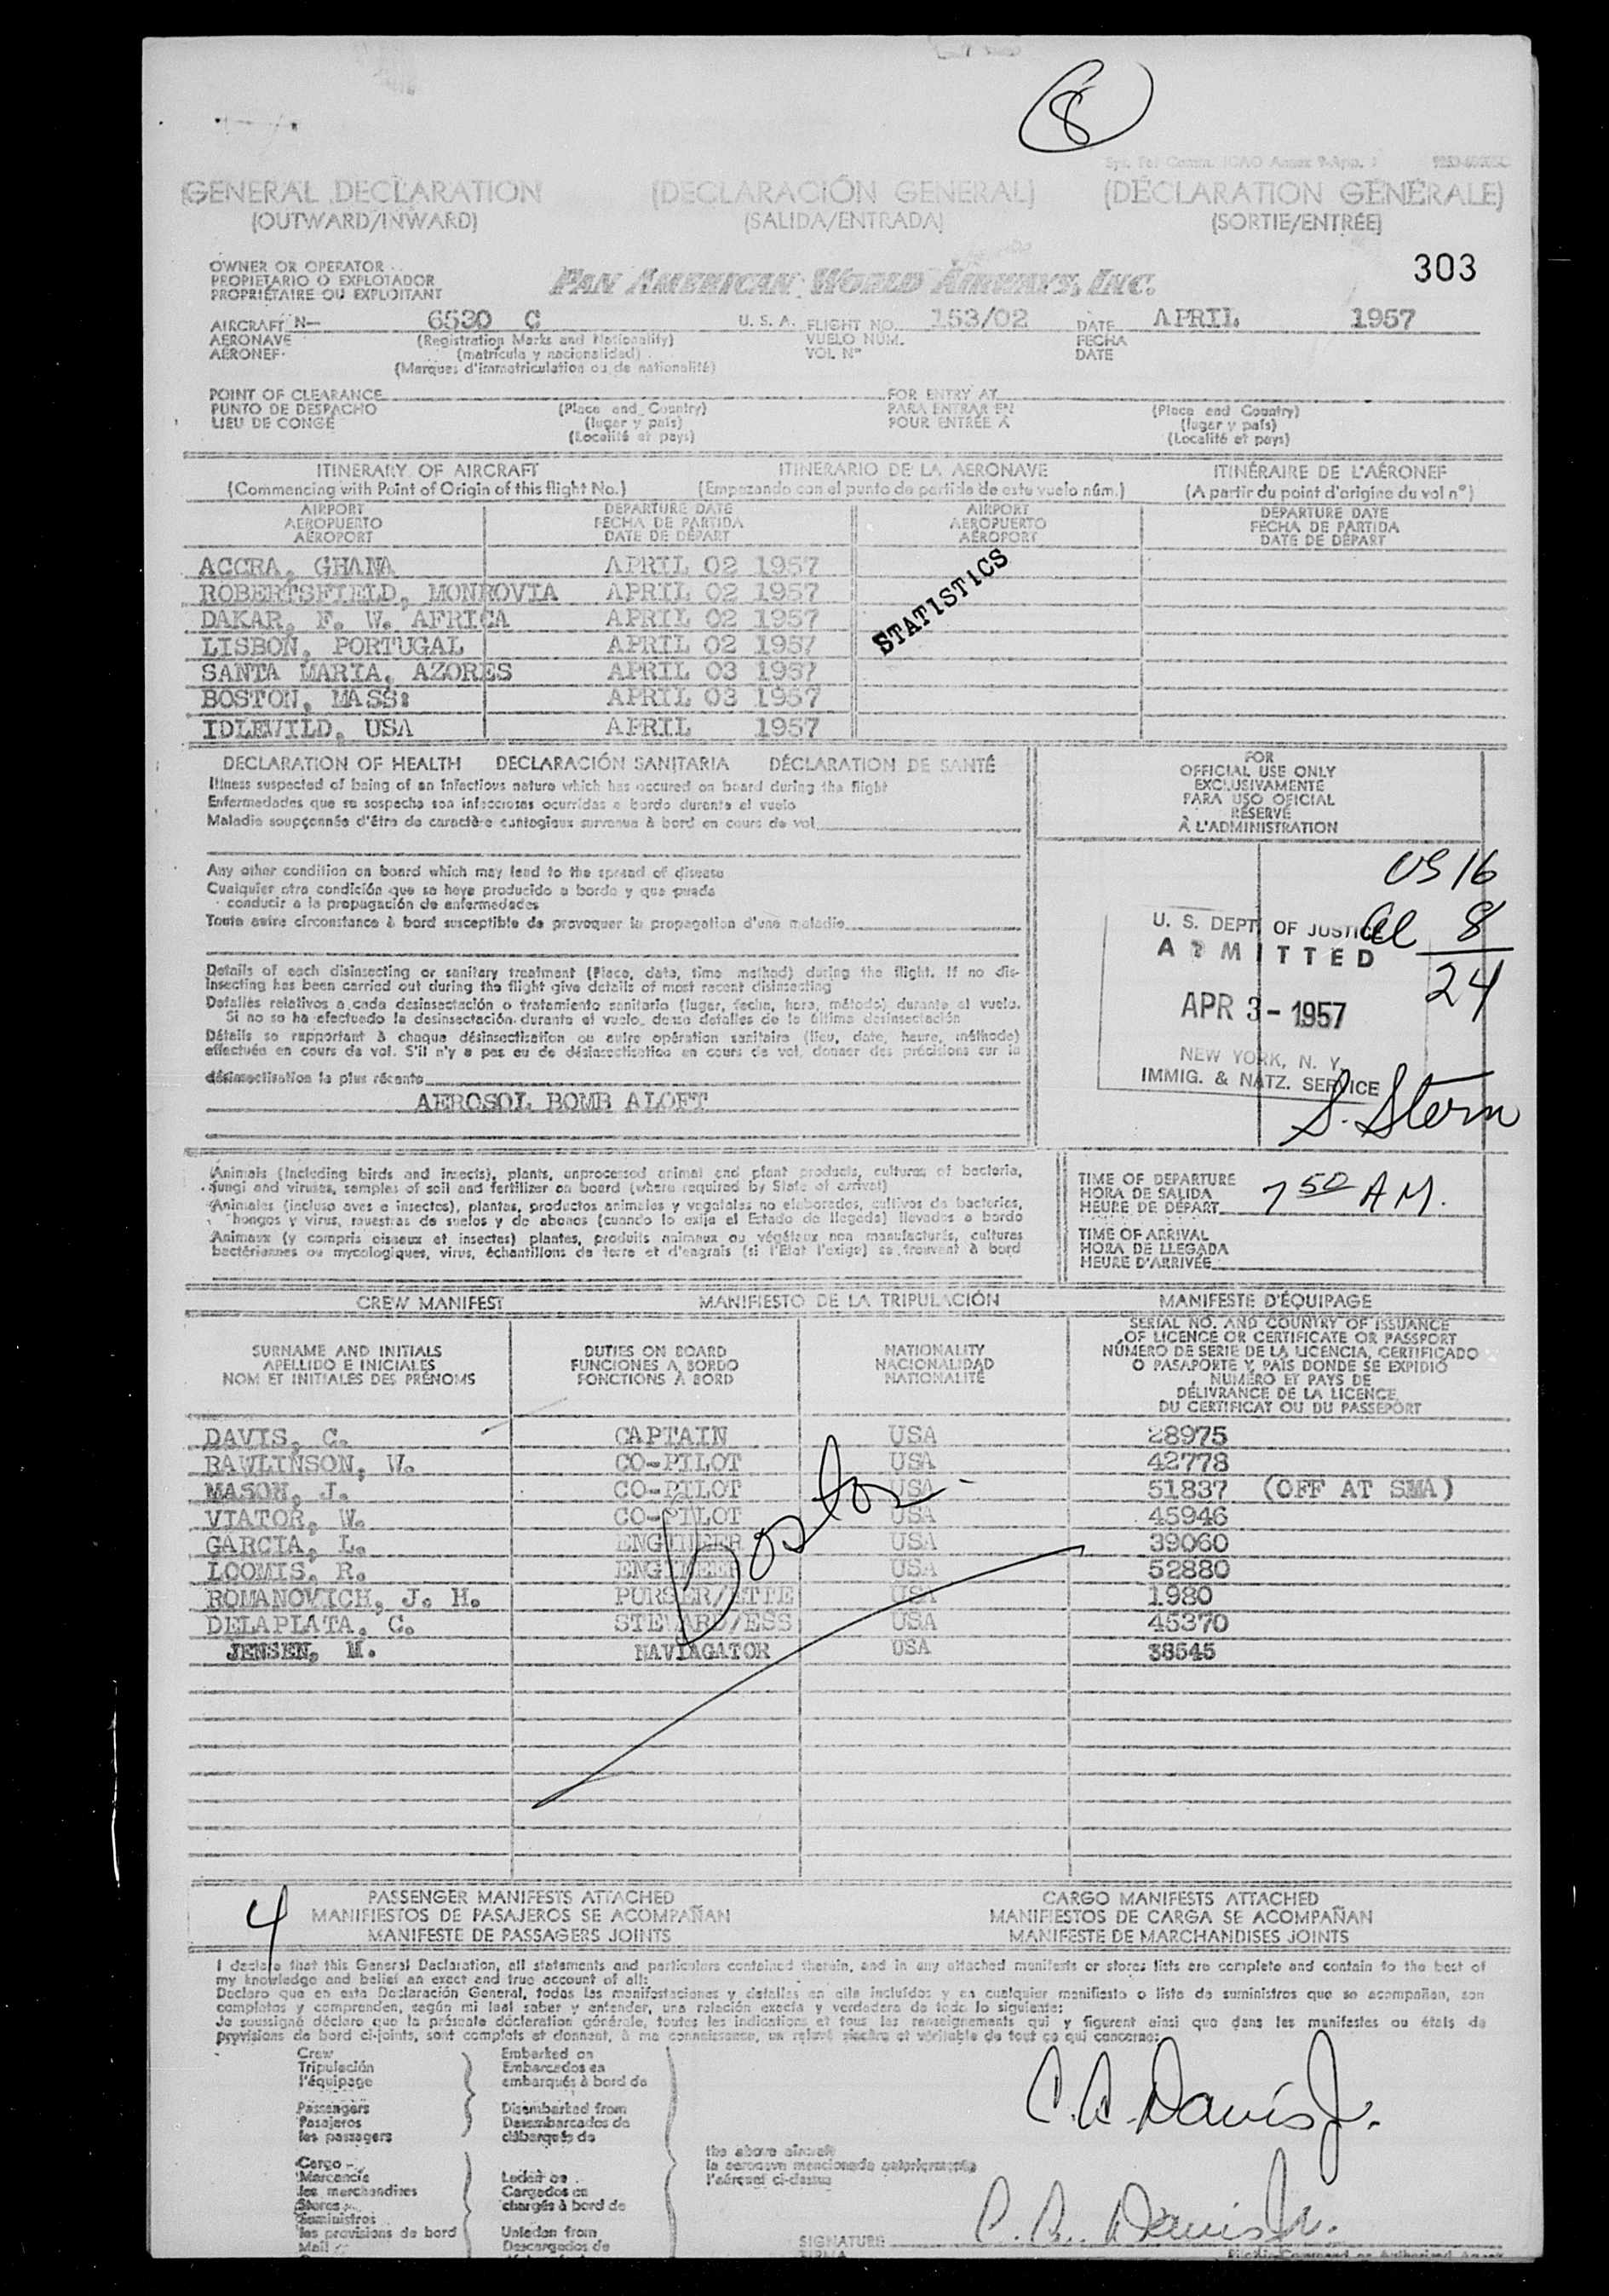 8
(GENERAL DECLARATION (DECLARACIÓN GENERAL) (DÉCLARATION GÉNÉRALE)
(OUTWARD/INWARD) (SALIDA/ENTRADA) (SORTIE/ENTRÉE)
303
OWNER OR OPERATOR
PROPIETARIO O EXPLOTADOR
PROPRIÉTAIRE OU EXPLOITANT
PAN AMERICAN WORLD AIRWAYS, INC.
AIRCRAFT N- 6530 C U. S. A. FLIGHT NO. 153/02 DATE APRIL 1957
AERONAVE (Registration Marks and Nationality) VUELO NÚM. FECHA
AÉRONEF (matrícula y nacionalidad) VOL N° DATE
(Marques d'immatriculation ou de nationalité)
POINT OF CLEARANCE FOR ENTRY AT
PUNTO DE DESPACHO (Place and Country) PARA ENTRAR EN (Place and Country)
LIEU DE CONGÉ (lugar y país) POUR ENTRÉE A (lugar y país)
(Localité et pays) (Localité et pays)
ITINERARY OF AIRCRAFT ITINERARIO DE LA AERONAVE ITINÉRAIRE DE L'AÉRONEF
(Commencing with Point of Origin of this flight No.) (Empezando con el punto de partida de este vuelo núm.) (A partir du point d'origine du vol n°)
AIRPORT DEPARTURE DATE AIRPORT DEPARTURE DATE
AEROPUERTO FECHA DE PARTIDA AEROPUERTO FECHA DE PARTIDA
AÉROPORT DATE DE DÉPART AÉROPORT DATE DE DÉPART
ACCRA, GHANA APRIL 02 1957
ROBERTSFIELD, MONROVIA APRIL 02 1957
DAKAR, F. W. AFRICA APRIL 02 1957
LISBON, PORTUGAL APRIL 02 1957
SANTA MARIA, AZORES APRIL 03 1957
BOSTON, MASS: APRIL 03 1957
IDLEWILD, USA APRIL 1957
STATISTICS
DECLARATION OF HEALTH DECLARACIÓN SANITARIA DÉCLARATION DE SANTÉ
Illness suspected of being of an infectious nature which has occured on board during the flight
Enfermedades que se sospecha son infecciosas ocurridas a bordo durante el vuelo
Maladie soupçonnée d'être de caractère contagieux survenue à bord en cours de vol
Any other condition on board which may lead to the spread of disease
Cualquier otra condición que se haya producido a bordo y que pueda
conducir a la propagación de enfermedades
Toute autre circonstance à bord susceptible de provoquer la propagation d'une maladie
Details of each disinsecting or sanitary treatment (Place, date, time method) during the flight. If no dis-
insecting has been carried out during the flight give details of most recent disinsecting
Detalles relativos a cada desinsectación o tratamiento sanitario (lugar, fecha, hora, método) durante el vuelo.
Si no se ha efectuado la desinsectación durante el vuelo, dense detalles de la última desinsectación
Détails se rapportant à chaque désinsectisation ou autre opération sanitaire (lieu, date, heure, méthode)
effectuée en cours de vol. S'il n'y a pas eu de désinsectisation en cours de vol, donner des précisions sur la
désinsectisation la plus récente
AEROSOL BOMB ALOFT
FOR
OFFICIAL USE ONLY
EXCLUSIVAMENTE
PARA USO OFICIAL
RÉSERVÉ
À L'ADMINISTRATION
US 16
al 8
24
U. S. DEPT. OF JUSTICE
ADMITTED
APR 3 - 1957
NEW YORK, N. Y.
IMMIG. & NATZ. SERVICE
S. Stern
Animals (including birds and insects), plants, unprocessed animal and plant products, cultures of bacteria,
fungi and viruses, samples of soil and fertilizer on board (where required by State of arrival)
Animales (incluso aves e insectos), plantas, productos animales y vegetales no elaborados, cultivos de bacterias,
hongos y virus, muestras de suelos y de abonos (cuando lo exija el Estado de llegada) llevados a bordo
Animaux (y compris oiseaux et insectes) plantes, produits animaux ou végétaux non manufacturés, cultures
bactériennes ou mycologiques, virus, échantillons de terre et d'engrais (si l'Etat l'exige) se trouvant à bord
TIME OF DEPARTURE
HORA DE SALIDA
HEURE DE DÉPART 7 50 AM.
TIME OF ARRIVAL
HORA DE LLEGADA
HEURE D'ARRIVÉE
CREW MANIFEST MANIFIESTO DE LA TRIPULACIÓN MANIFESTE D'ÉQUIPAGE
SURNAME AND INITIALS
APELLIDO E INICIALES
NOM ET INITIALES DES PRÉNOMS
DUTIES ON BOARD
FUNCIONES A BORDO
FONCTIONS À BORD
NATIONALITY
NACIONALIDAD
NATIONALITÉ
SERIAL NO. AND COUNTRY OF ISSUANCE
OF LICENCE OR CERTIFICATE OR PASSPORT
NÚMERO DE SERIE DE LA LICENCIA, CERTIFICADO
O PASAPORTE Y PAÍS DONDE SE EXPIDIÓ
NUMÉRO ET PAYS DE
DÉLIVRANCE DE LA LICENCE,
DU CERTIFICAT OU DU PASSEPORT
DAVIS, C. CAPTAIN USA 28975
RAWLINSON, W. CO-PILOT USA 42778
MASON, J. CO-PILOT USA 51837 (OFF AT SMA)
VIATOR, W. CO-PILOT USA 45946
GARCIA, L. ENGINEER USA 39060
LOOMIS, R. ENGINEER USA 52880
ROMANOVICH, J. H. PURSER/ETTE USA 1980
DELAPLATA, C. STEWARD/ESS USA 45370
JENSEN, M. NAVIAGATOR USA 38545
Boston
4
PASSENGER MANIFESTS ATTACHED CARGO MANIFESTS ATTACHED
MANIFIESTOS DE PASAJEROS SE ACOMPAÑAN MANIFIESTOS DE CARGA SE ACOMPAÑAN
MANIFESTE DE PASSAGERS JOINTS MANIFESTE DE MARCHANDISES JOINTS
I declare that this General Declaration, all statements and particulars contained therein, and in any attached manifests or stores lists are complete and contain to the best of
my knowledge and belief an exact and true account of all:
Declaro que en esta Declaración General, todas las manifestaciones y detalles en ella incluídos y en cualquier manifiesto o lista de suministros que se acompañan, son
completos y comprenden, según mi leal saber y entender, una relación exacta y verdadera de todo lo siguiente:
Je soussigné déclare que la présente déclaration générale, toutes les indications et tous les renseignements qui y figurent ainsi que dans les manifestes ou états de
provisions de bord ci-joints, sont complets et donnent, à ma connaissance, un relevé sincère et véritable de tout ce qui concerne:
Crew Embarked on
Tripulación Embarcados en
l'équipage embarqués à bord de
Passengers Disembarked from
Pasajeros Desembarcados de
les passagers débarqués de
C. A. Davis Jr.
the above aircraft
la aeronave mencionada anteriormente
l'aéronef ci-dessus
Cargo
Mercancía Laden on
les marchandises Cargados en
Stores chargés à bord de
Suministros
les provisions de bord Unladen from
Mail Descargados de
SIGNATURE C. A. Davis Jr.